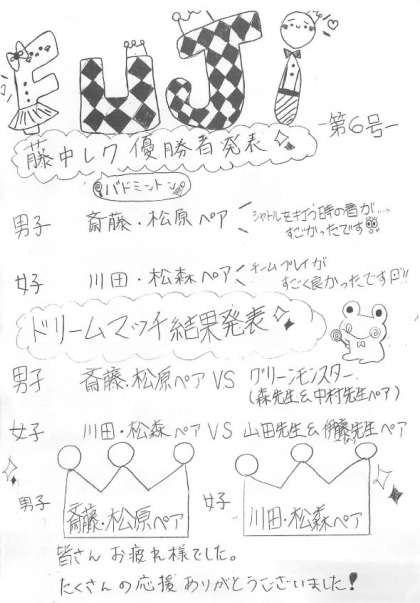 FUJI
-第6号-
藤中レク優勝者発表
バドミントン
男子 斎藤・松原ペア シャトルを打つ時の音が…
すごかったです!!
女子 川田・松森ペア チームプレイが
すごく良かったです!!
ドリームマッチ結果発表
男子 斎藤・松原ペア VS グリーンモンスター
(森先生&中村先生ペア)
女子 川田・松森ペア VS 山田先生&伊藤先生ペア
男子 斎藤・松原ペア 女子 川田・松森ペア
皆さんお疲れ様でした。
たくさんの応援ありがとうございました!